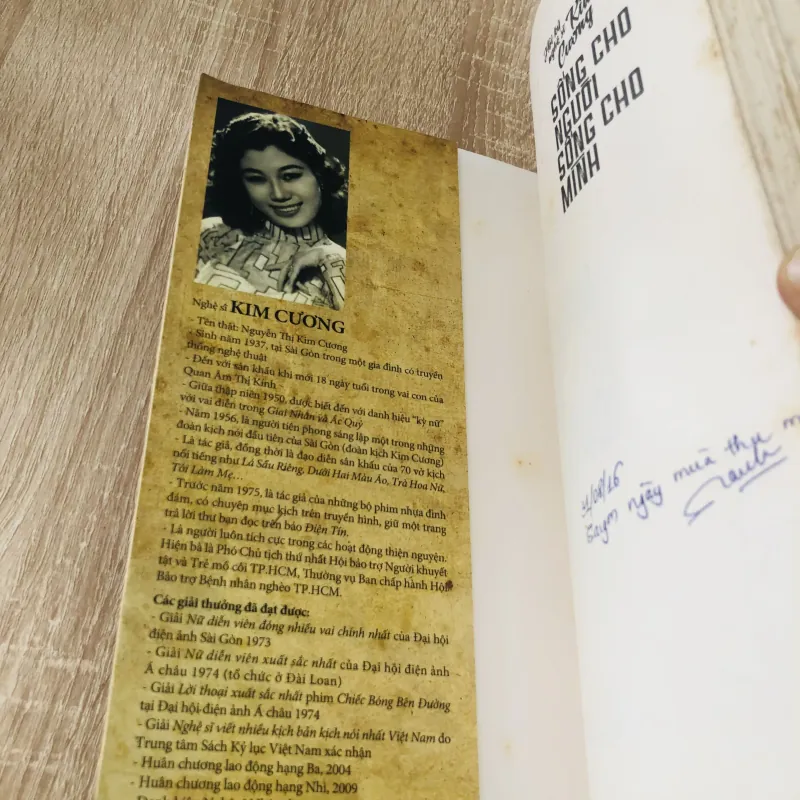 Nghệ sĩ KIM CƯƠNG
- Tên thật: Nguyễn Thị Kim Cương
- Sinh năm 1937, tại Sài Gòn trong một gia đình có truyền
thống nghệ thuật
- Đến với sân khấu khi mới 18 ngày tuổi trong vai con của
Quan Âm Thị Kính
- Giữa thập niên 1950, được biết đến với danh hiệu "kỳ nữ"
với vai diễn trong Giai Nhân và Ác Quỷ
- Năm 1956, là người tiên phong sáng lập một trong những
đoàn kịch nói đầu tiên của Sài Gòn (đoàn kịch Kim Cương)
- Là tác giả, đồng thời là đạo diễn sân khấu của 70 vở kịch
nổi tiếng như Lá Sầu Riêng, Dưới Hai Màu Áo, Trà Hoa Nữ,
Tôi Làm Mẹ...
- Trước năm 1975, là tác giả của những bộ phim nhựa đình
đám, có chuyên mục kịch trên truyền hình, giữ một trang
trả lời thư bạn đọc trên báo Điện Tín.
- Là người luôn tích cực trong các hoạt động thiện nguyện.
Hiện bà là Phó Chủ tịch thứ nhất Hội bảo trợ Người khuyết
tật và Trẻ mồ côi TP.HCM, Thường vụ Ban chấp hành Hội
Bảo trợ Bệnh nhân nghèo TP.HCM.
Các giải thưởng đã đạt được:
- Giải Nữ diễn viên đóng nhiều vai chính nhất của Đại hội
điện ảnh Sài Gòn 1973
- Giải Nữ diễn viên xuất sắc nhất của Đại hội điện ảnh
Á châu 1974 (tổ chức ở Đài Loan)
- Giải Lời thoại xuất sắc nhất phim Chiếc Bóng Bên Đường
tại Đại hội điện ảnh Á châu 1974
- Giải Nghệ sĩ viết nhiều kịch bản kịch nói nhất Việt Nam do
Trung tâm Sách Kỷ lục Việt Nam xác nhận
- Huân chương lao động hạng Ba, 2004
- Huân chương lao động hạng Nhì, 2009
Hồi ký
nghệ sĩ Kim
Cương
SỐNG CHO
NGƯỜI
SỐNG CHO
MÌNH
ngày mưa thu